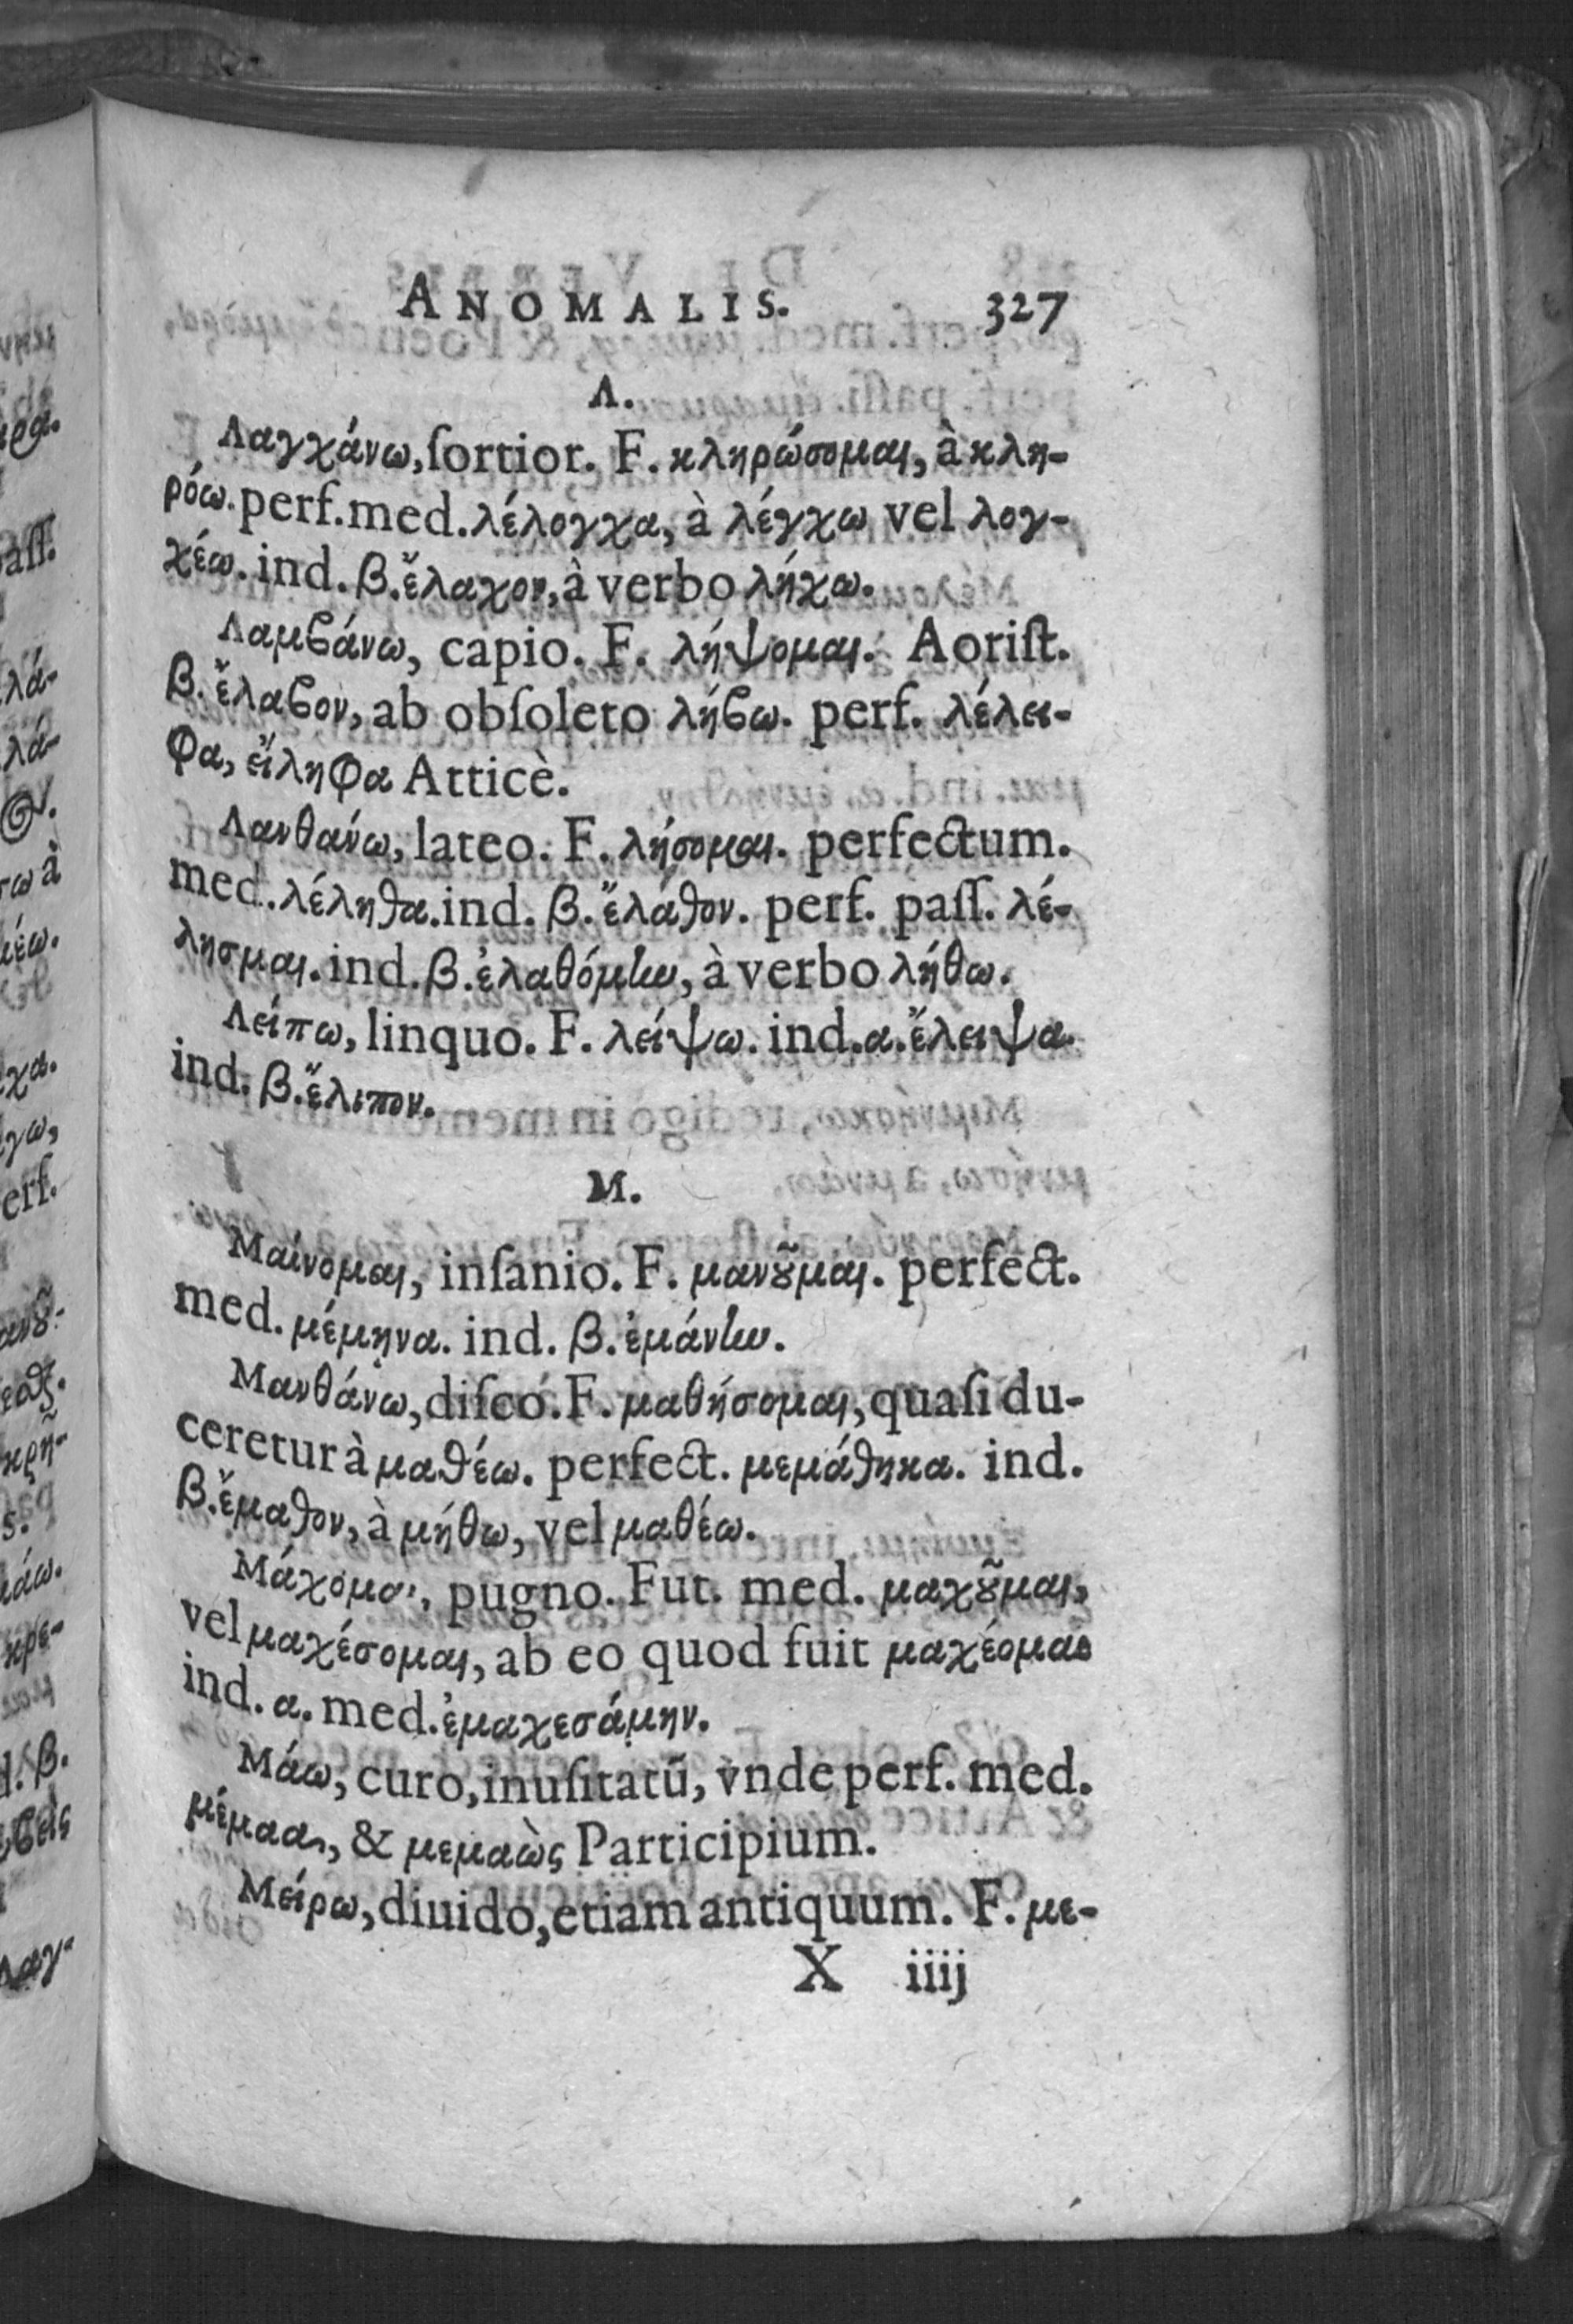 ANOMALIS. 327
Λ.
Λαγχάνω, ſortior. F. κληρώσομαι, à κλη-
ρόω. perf. med. λέλογχα, à λέγχω vel λογ-
χέω. ind. β. ἔλαχον, à verbo λήχω.
Λαμϐάνω, capio. F. λήψομαι. Aoriſt.
β. ἔλαϐον, ab obſoleto λήϐω. perf. λέλει-
φα, εἴληφα Atticè.
Λανθανω, lateo. F. λήσομαι. perfectum.
med. λέληθα. ind. β. ἔλάθον. perf. paſſ. λέ-
λησμαι. ind. β. ἐλαθόμην, à verbo λήθω.
Λείπω, linquo. F. λείψω. ind. α. ἔλειψα.
ind. β. ἔλιπον.
M.
Μαίνομαι, inſanio. F. μανοῦμαι. perfect.
med. μέμηνα. ind. β. ἐμάνην.
Μανθάνω, diſco. F. μαθήσομαι, quaſi du-
ceretur à μαθέω. perfect. μεμάθηκα. ind.
β. ἔμαθον, à μήθω, vel μαθέω.
Μάχομαι, pugno. Fut. med. μαχοῦμαι,
vel μαχέσομαι, ab eo quod fuit μαχέομαι
ind. α. med. ἐμαχεσάμην.
Μάω, curo, inuſitatũ, vnde perf. med.
μέμαα, & μεμαὼς Participium.
Μείρω, diuido, etiam antiquum. F. με-
X iiij